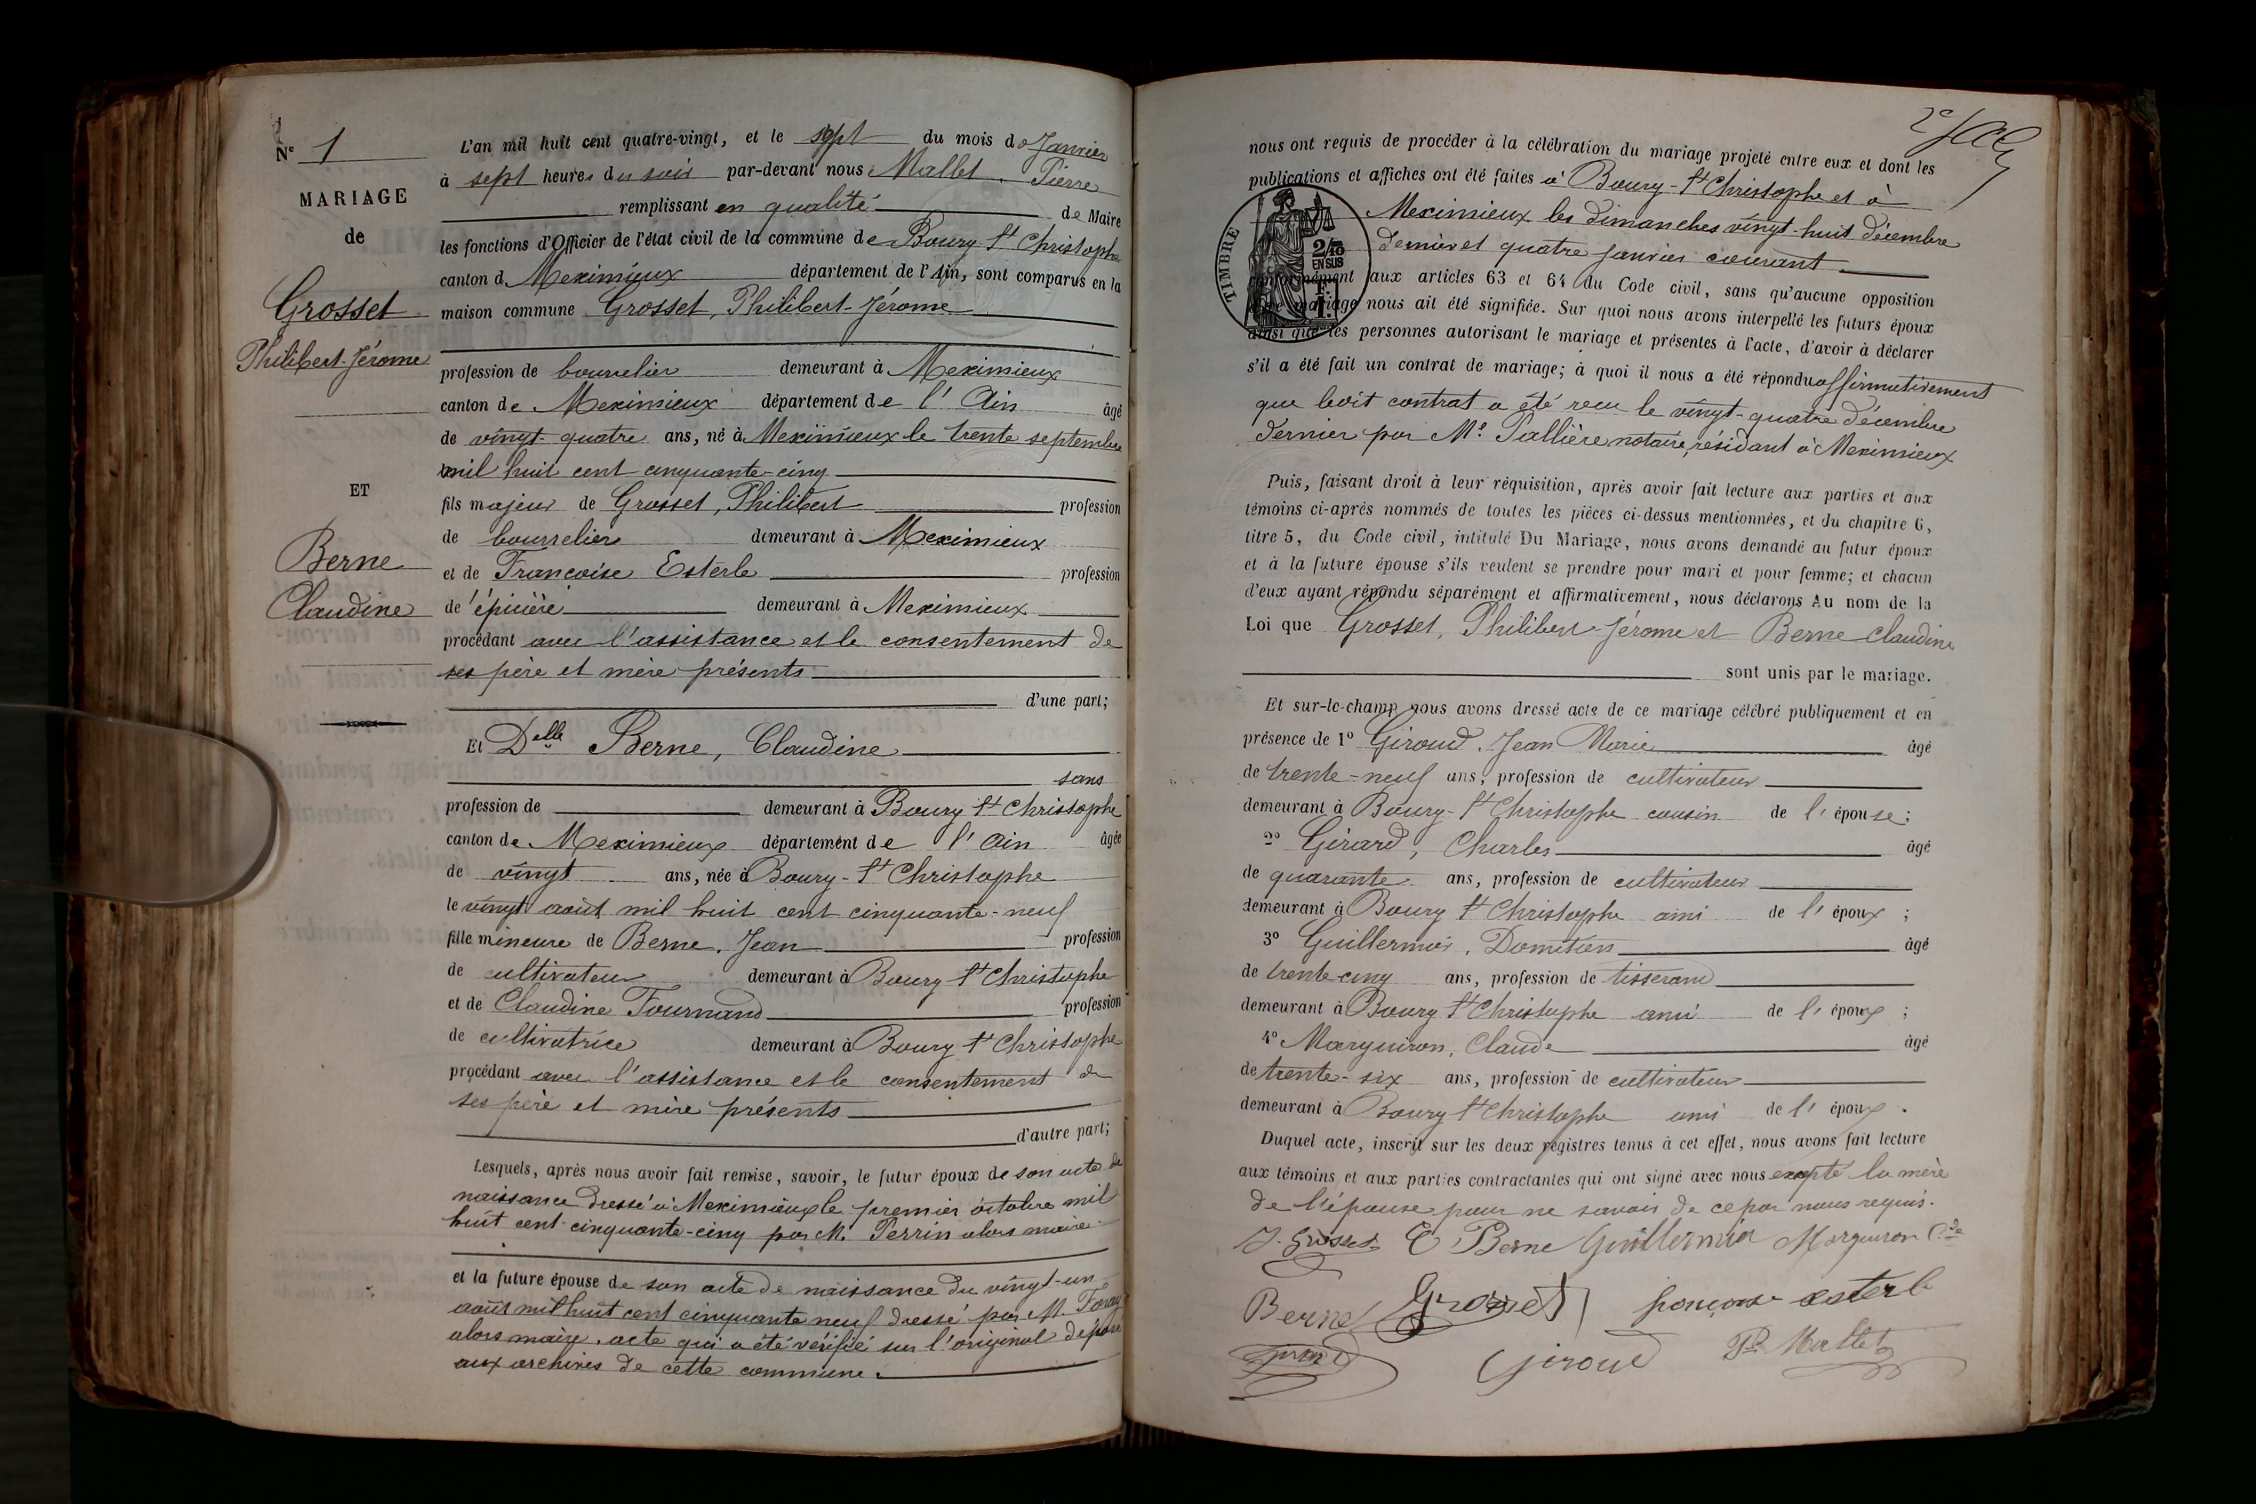 N° 1
MARIAGE
de
Grosset
Philibert-Jérome
ET
Berne
Claudine
L'an mil huit cent quatre-vingt, et le sept du mois de Janvier
à sept heures du soir par-devant nous Mallet, Pierre
remplissant en qualité de Maire
les fonctions d'Officier de l'état civil de la commune de Bourg St Christophe
canton de Meximieux département de l'Ain, sont comparus en la
maison commune Grosset, Philibert-Jérome
profession de bourrelier demeurant à Meximieux
canton de Meximieux département de l'Ain âgé
de vingt-quatre ans, né à Meximieux le trente septembre
mil huit cent cinquante-cinq
fils majeur de Grosset, Philibert profession
de bourrelier demeurant à Meximieux
et de Françoise Esterle profession
de épicière demeurant à Meximieux
procédant avec l'assistance et le consentement de
ses père et mère présents
d'une part;
Et Delle Berne, Claudine
sans
profession de demeurant à Bourg St Christophe
canton de Meximieux département de l'Ain âgée
de vingt ans, née à Bourg-St Christophe
le vingt août mil huit cent cinquante-neuf
fille mineure de Berne, Jean profession
de cultivateur demeurant à Bourg St Christophe
et de Claudine Fournand profession
de cultivatrice demeurant à Bourg St Christophe
procédant avec l'assistance et le consentement de
ses père et mère présents
d'autre part;
Lesquels, après nous avoir fait remise, savoir, le futur époux de son acte de
naissance dressé à Meximieux le premier octobre mil
huit cent cinquante-cinq par M. Perrin alors maire
et la future épouse de son acte de naissance du vingt-un
août mil huit cent cinquante neuf dressé par M. Faray
alors maire, acte qui a été vérifié sur l'original déposé
aux archives de cette commune.
2e
nous ont requis de procéder à la célébration du mariage projeté entre eux et dont les
publications et affiches ont été faites à Bourg-St Christophe et à
Meximieux les dimanches vingt-huit décembre
dernier et quatre janvier courant
TIMBRE
2/10
EN SUS
conformément aux articles 63 et 64 du Code civil, sans qu'aucune opposition
mariage nous ait été signifiée. Sur quoi nous avons interpellé les futurs époux
ainsi que les personnes autorisant le mariage et présentes à l'acte, d'avoir à déclarer
s'il a été fait un contrat de mariage; à quoi il nous a été répondu affirmativement
que ledit contrat a été reçu le vingt-quatre décembre
dernier par Me Pallière notaire, résidant à Meximieux
Puis, faisant droit à leur réquisition, après avoir fait lecture aux parties et aux
témoins ci-après nommés de toutes les pièces ci-dessus mentionnées, et du chapitre 6,
titre 5, du Code civil, intitulé Du Mariage, nous avons demandé au futur époux
et à la future épouse s'ils veulent se prendre pour mari et pour femme; et chacun
d'eux ayant répondu séparément et affirmativement, nous déclarons Au nom de la
Loi que Grosset, Philibert-Jérome et Berne Claudine
sont unis par le mariage.
Et sur-le-champ nous avons dressé acte de ce mariage célébré publiquement et en
présence de 1° Giroud, Jean Marie âgé
de trente-neuf ans, profession de cultivateur
demeurant à Bourg-St Christophe cousin de l'épouse;
2° Girard, Charles âgé
de quarante ans, profession de cultivateur
demeurant à Bourg St Christophe ami de l'époux;
3° Guillermier, Domitien âgé
de trente cinq ans, profession de tisserand
demeurant à Bourg St Christophe ami de l'époux;
4° Marguiron, Claude âgé
de trente-six ans, profession de cultivateur
demeurant à Bourg St Christophe ami de l'époux.
Duquel acte, inscrit sur les deux registres tenus à cet effet, nous avons fait lecture
aux témoins et aux parties contractantes qui ont signé avec nous excepté la mère
de l'épouse pour ne savoir de ce par nous requis.
J. Grosset C Berne Guillermier Marguiron Cde
Berne Grosset françoise esterle
Girard Giroud Pre Mallet